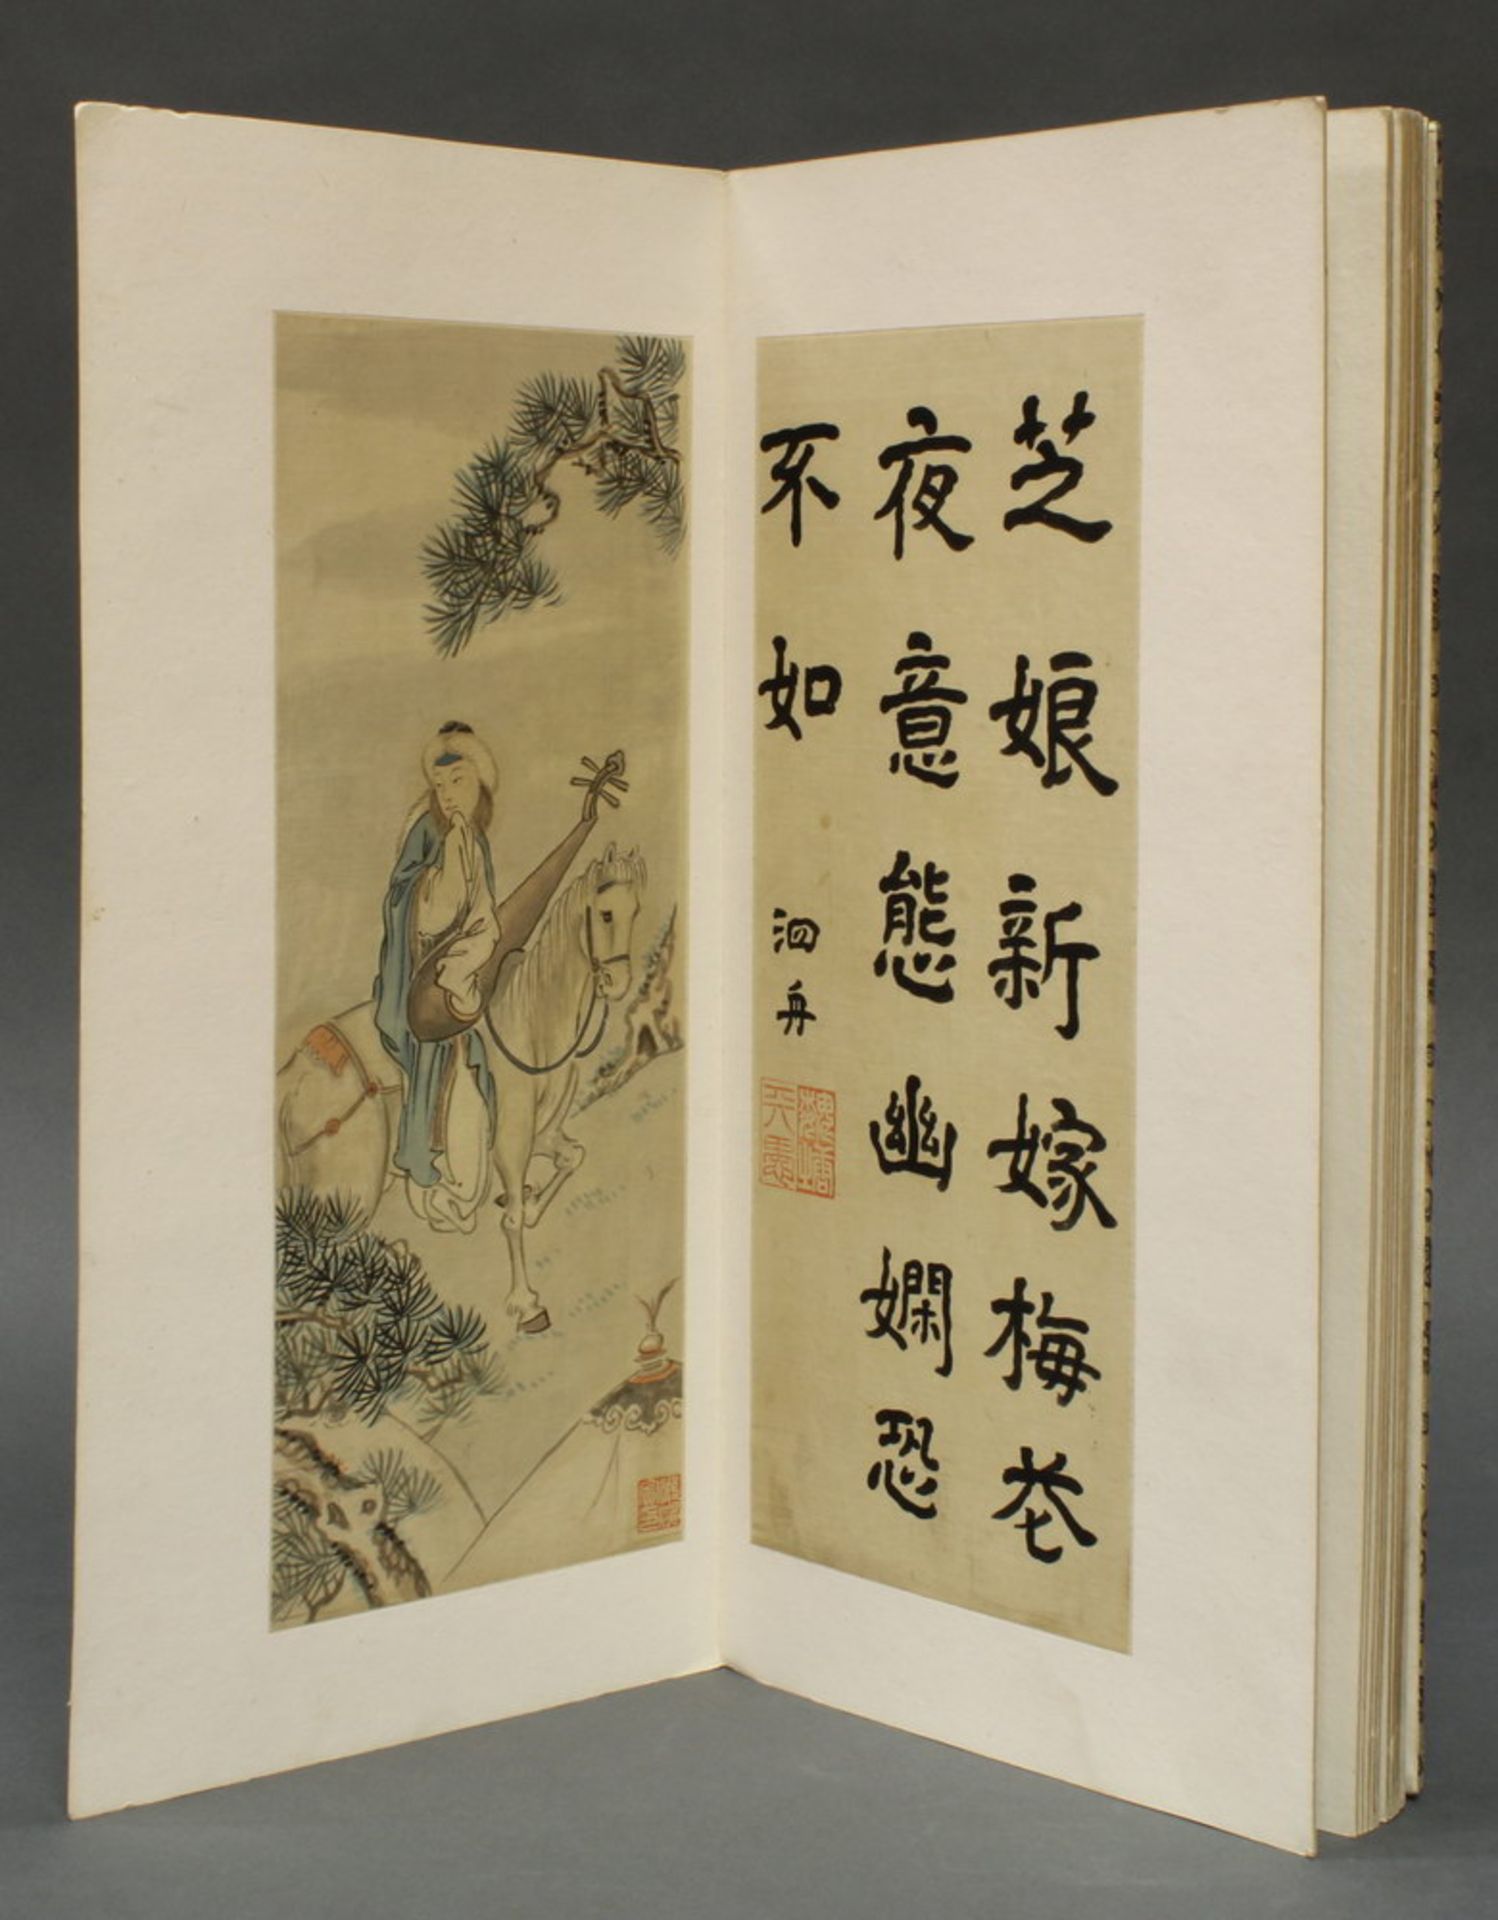 芝娘新嫁梅花
夜意態幽嫻恐
不如
泗舟